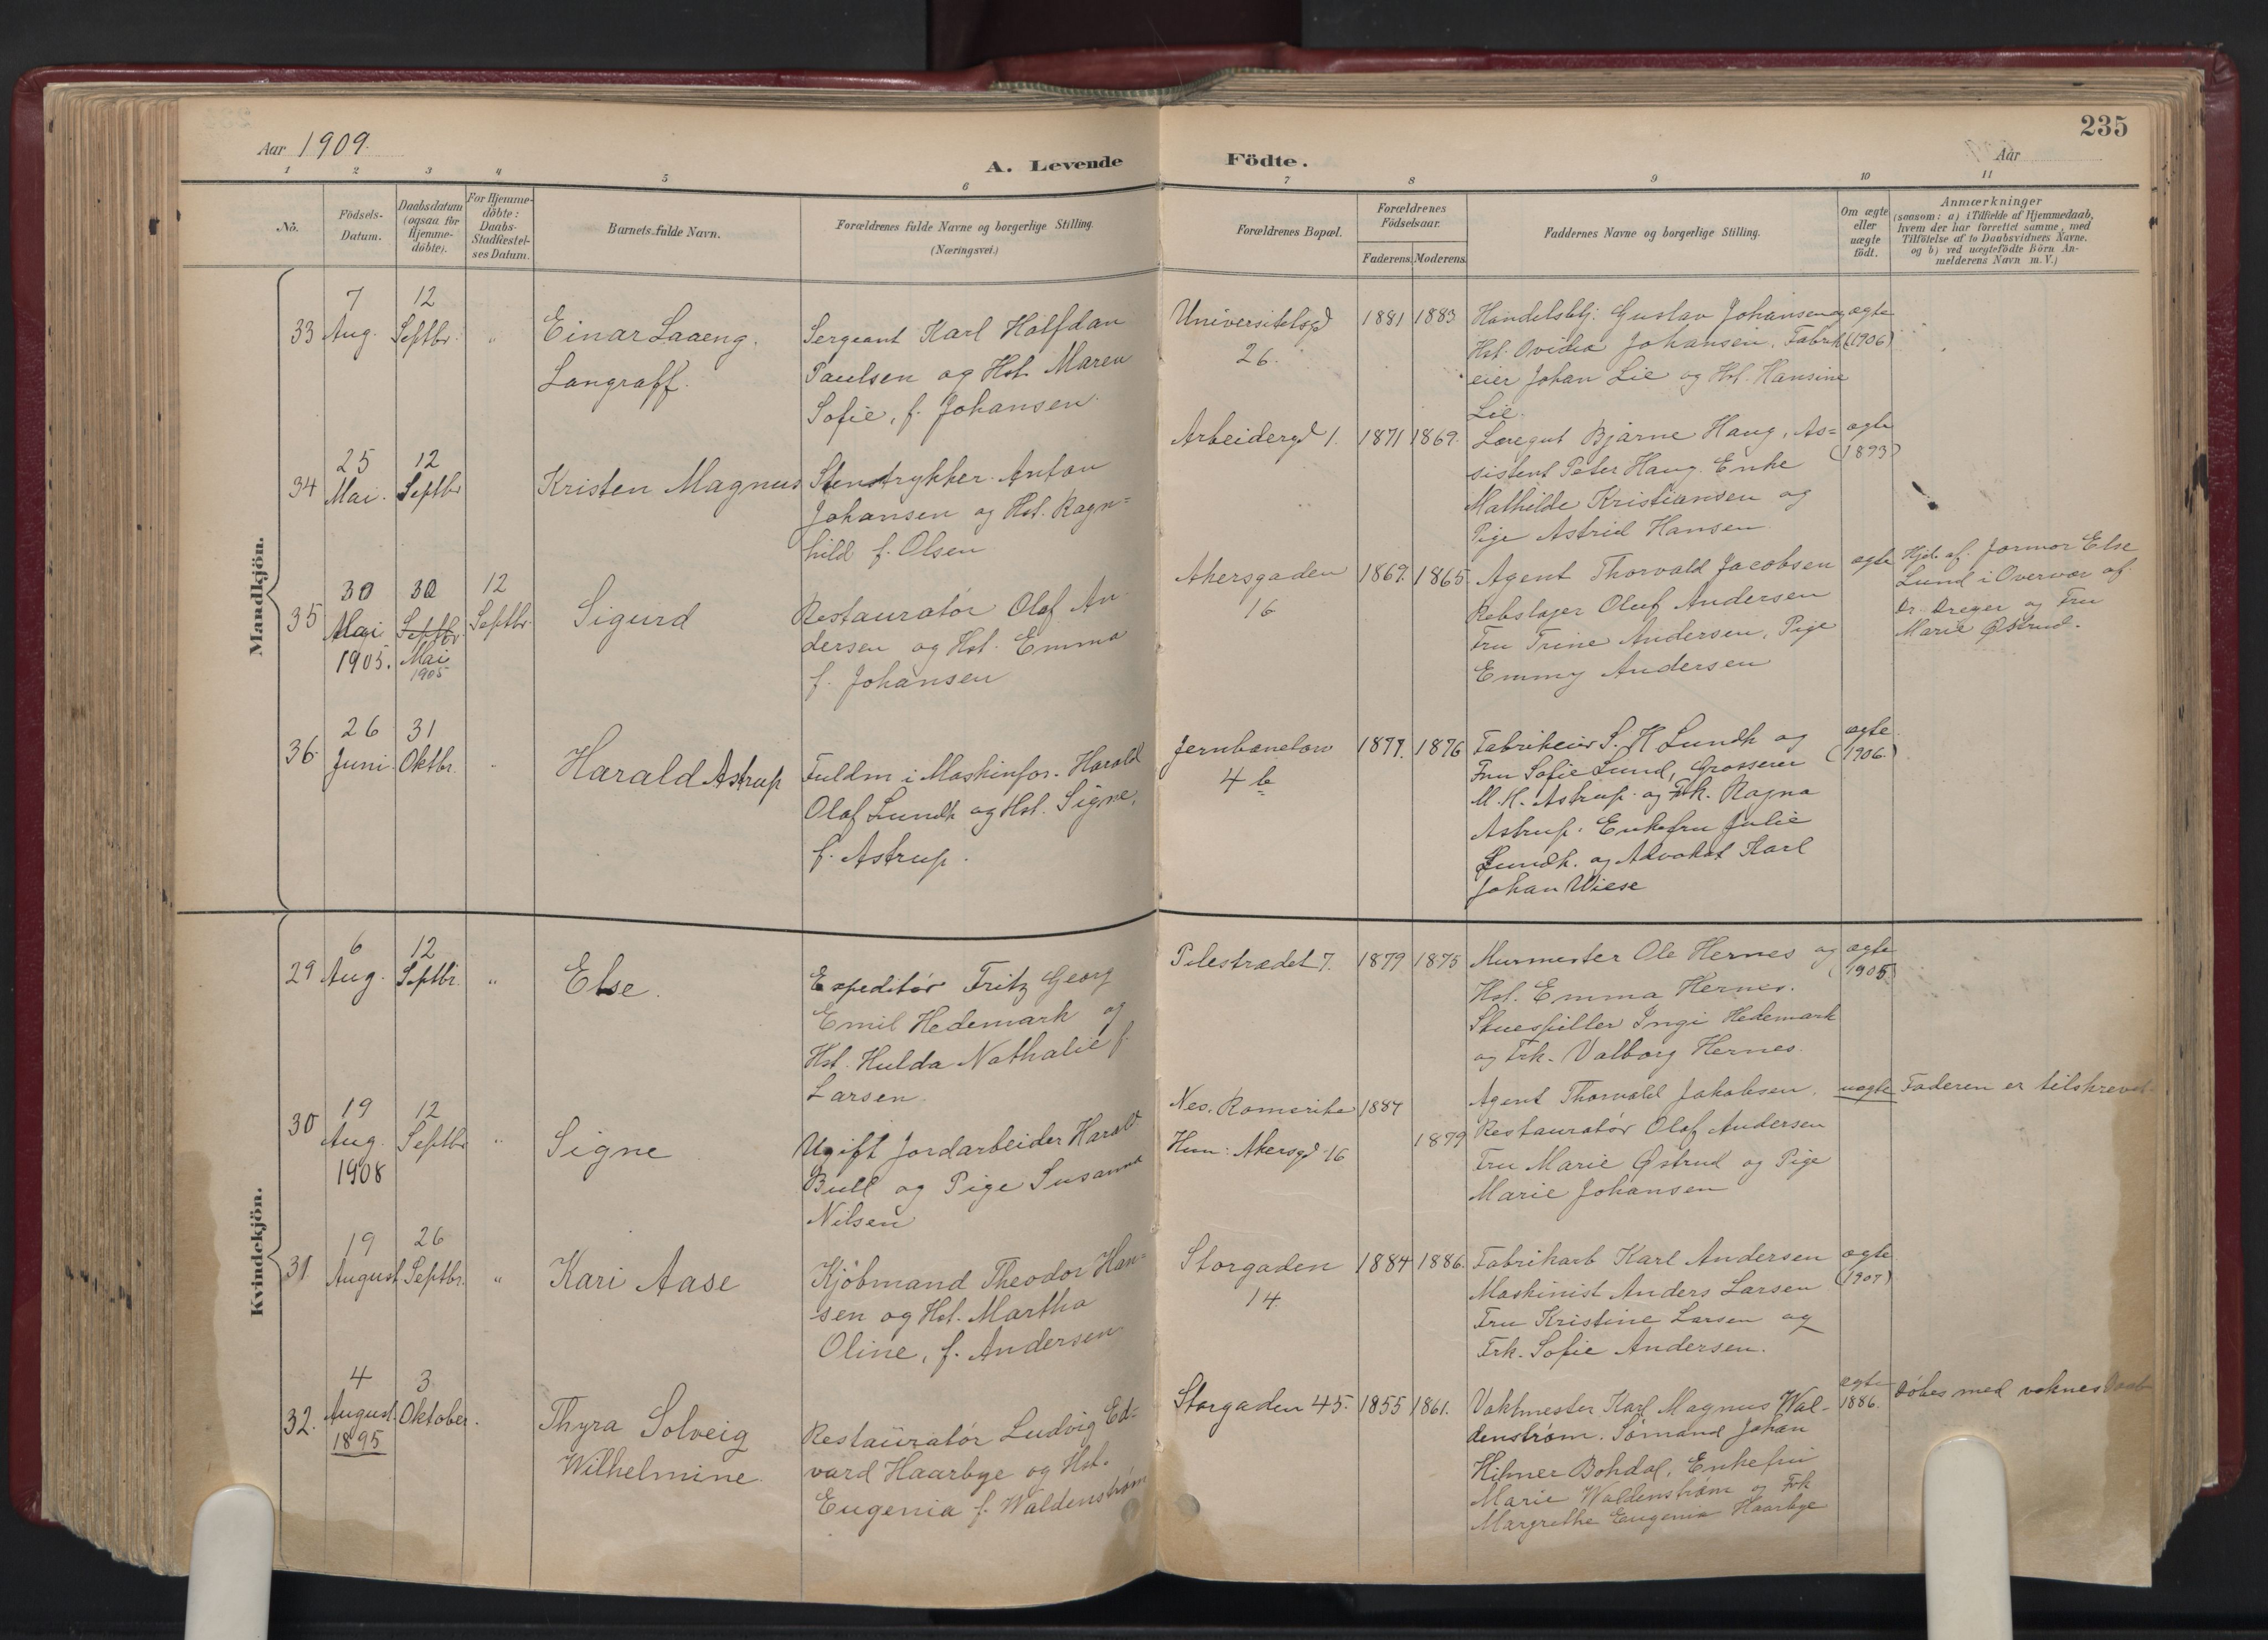 235
Aar 1909.
A. Levende Födte.
Aar
1 2 3 4 5 6 7 8 9 10 11
No.
Födsels-
Datum.
Daabsdatum
(ogsaa for
Hjemme-
döbte).
For Hjemme-
döbte:
Daabs-
Stadfæstel-
ses Datum.
Barnets fulde Navn.
Forældrenes fulde Navne og borgerlige Stilling.
(Næringsvei.)
Forældrenes Bopæl.
Forældrenes
Födselsaar.
Faderens. Moderens.
Faddernes Navne og borgerlige Stilling.
Om ægte
eller
uægte
födt.
Anmærkninger
(saasom: a) i Tilfælde af Hjemmedaab,
hvem der har forrettet samme, med
Tilföielse af to Daabsvidners Navne.
og b) ved uægtefödte Börn An-
melderens Navn m. V.)
Mandkjön.
33
7
Aug.
12
Septbr.
"
Einar Laaeng.
Langraff.
Sergeant Karl Halfdan
Paulsen og Hst. Maren
Sofie, f. Johansen.
Universitetsgd
26.
1881 1883
Handelsbtj: Gustav Johansen og
Hst. Ovidia Johansen. Fabrik
eier Johan Lie og Hst. Hansine
Lie.
ægte
(1906)
34
25
Mai.
12
Septbr
Kristen Magnus
Stentrykker Anton
Johansen og Hst. Ragn=
hild f. Olsen
Arbeidergd 1.
1871 1869.
Læregut Bjarne Haug, As=
sistent Peter Haug. Enke
Mathilde Kristiansen og
Pige Astrid Hansen.
ægte
(1893)
35
30
Mai
1905.
30
Septbr.
Mai
1905
12
Septbr.
Sigurd
Restauratør Olaf An-
dersen og Hst. Emma
f. Johansen
Akersgaden
16
1869. 1865.
Agent Thorvald Jacobsen
Rebslager Oluf Andersen
Fru Trine Andersen, Pige
Emmy Andersen
ægte
Hjd. af Jormor Else
Lund i Overvær af
Dr. Dreyer og Fru
Marie Østrud.
36.
26
Juni.
31
Oktbr.
Harald Astrup
Fuldm i Maskinfor. Harald
Olaf Lundh og Hst. Signe,
f. Astrup.
Jernbanetorv
4 b
1877. 1876
Fabrikeier S. H Lundh og
Fru Sofie Lund, Grosserer
M. K. Astrup og Frk. Ragna
Astrup. Enkefru Julie
Lundh. og Advokat Karl
Johan Wiese
ægte.
(1906.)
Kvindekjön.
29
6
Aug.
12
Septbr.
"
Else.
Expeditør Fritz Georg
Emil Hedemark og
Hst. Hulda Nathalie f.
Larsen
Pilestrædet 7.
1879 1875
Murmester Ole Hernes og
Hst. Emma Hernes.
Skuespiller Ingi Hedemark
og Frk. Valborg Hernes.
ægte
(1905)
30
19
Aug.
1908
12
Septbr
"
Signe
Ugift Jordarbeider Harald
Bull og Pige Susanna
Nilsen
Nes. Romerike
Hun: Akersgd 16
1887
1879
Agent Thorvald Jakobsen,
Restauratør Olaf Andersen
Fru Marie Østrud og Pige
Marie Johansen
uægte
Faderen er tilskrevet.
31.
19
August
26
Septbr.
"
Kari Aase
Kjøbmand Theodor Han=
sen og Hst. Martha
Oline, f. Andersen
Storgaden
14.
1884 1886.
Fabrikarb Karl Andersen
Maskinist Anders Larsen
Fru Kristine Larsen og
Frk. Sofie Andersen.
ægte
(1907)
32.
4
August.
1895
3
Oktober.
Thyra Solveig
Wilhelmine.
Restauratør Ludvig Ed=
vard Haarbye og Hst.
Eugenia f. Waldenstrøm
Storgaden 45.
1855 1861.
Vaktmester Karl Magnus Wal-
denstrøm. Sømand Johan
Hilmer Bohdal, Enkefru
Marie Waldenstrøm og Frk
Margrethe Eugenia Haarbye
ægte
1886.
Døbes med voknes Daab